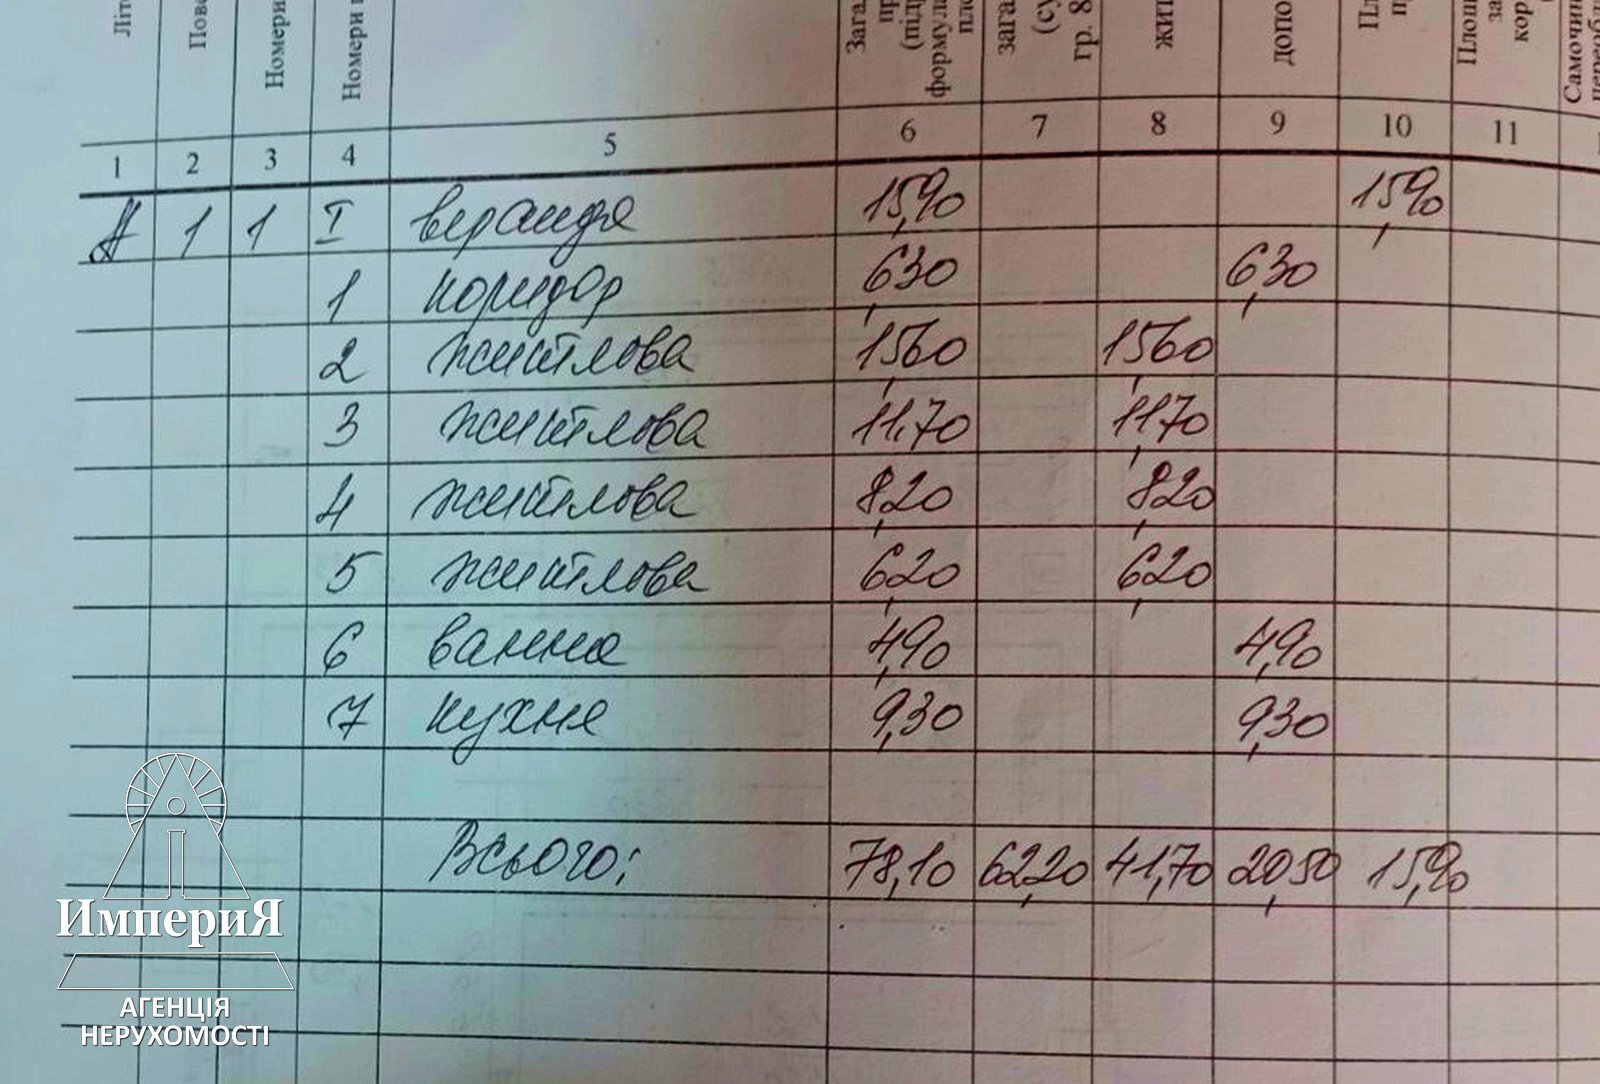 Літе
Пове
Номери
Номери п
Загал
пр
(підр
формулам
пло
зага
(су
гр. 8
жит
допо
Пл
п
Площ
за
кор
Самочин
переобл
1 2 3 4 5 6 7 8 9 10 11
А 1 1 I веранда 15,90 15,90
1 коридор 6,30 6,30
2 житлова 15,60 15,60
3 житлова 11,70 11,70
4 житлова 8,20 8,20
5 житлова 6,20 6,20
6 ванна 4,90 4,90
7 кухня 9,30 9,30
Всього: 78,10 62,20 41,70 20,50 15,90
ИмпериЯ
АГЕНЦІЯ
НЕРУХОМОСТІ